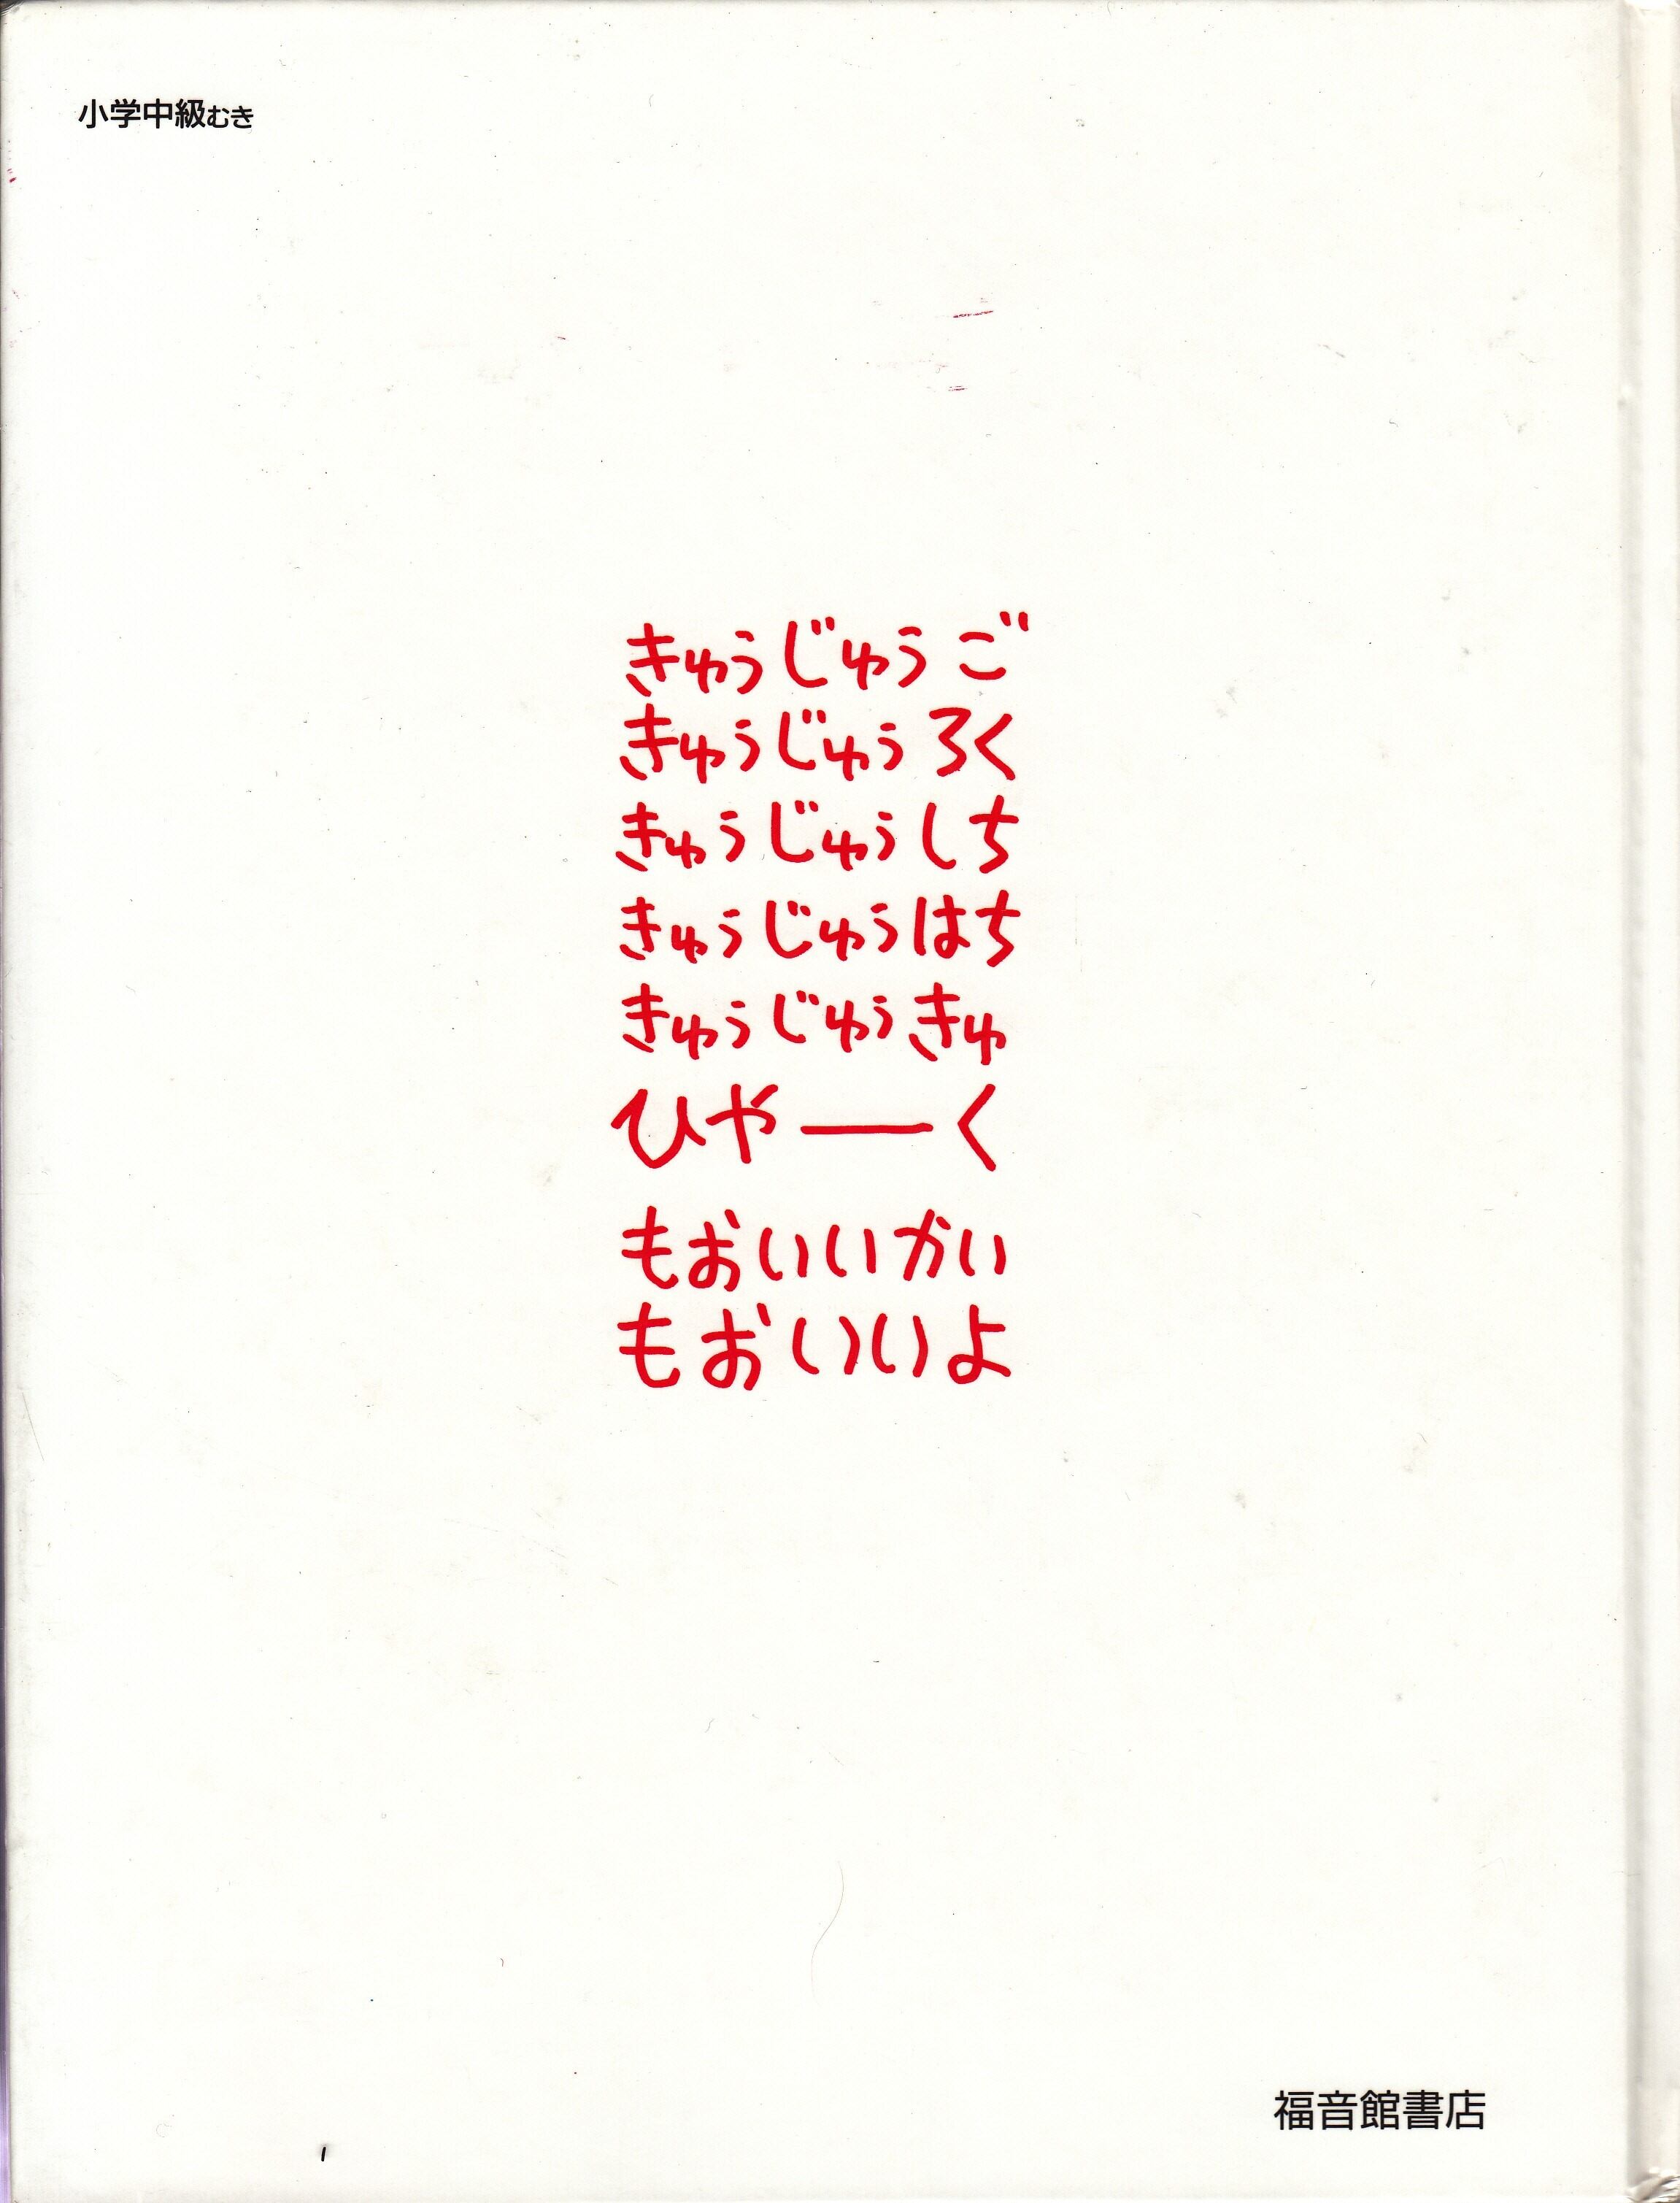 小学中級むき
きゅうじゅうご
きゅうじゅうろく
きゅうじゅうしち
きゅうじゅうはち
きゅうじゅうきゅ
ひやーく
もおいいかい
もおいいよ
福音館書店